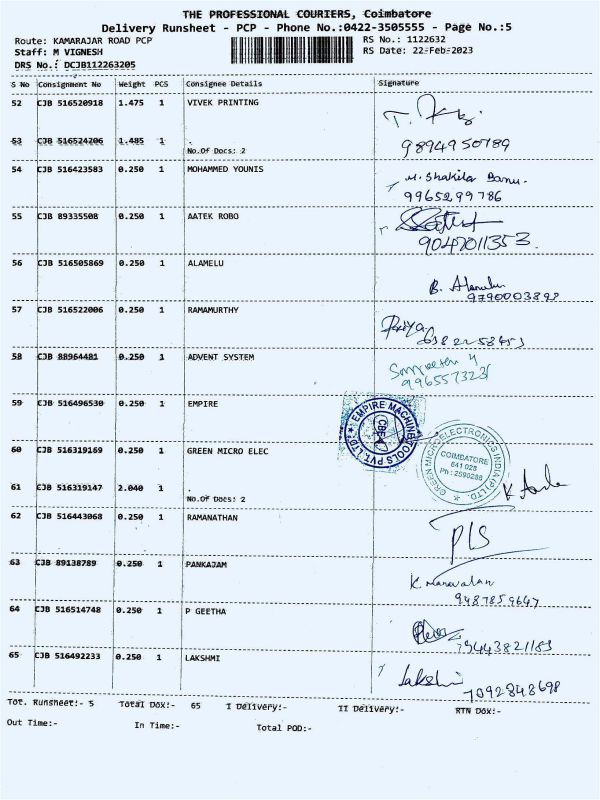 THE PROFESSIONAL COURIERS, Coimbatore
Delivery Runsheet - PCP - Phone No.:0422-3505555 - Page No.:5
Route: KAMARAJAR ROAD PCP RS No.: 1122632
Staff: M VIGNESH RS Date: 22-Feb-2023
DRS No.: DCJB112263205
S No Consignment No Weight PCS Consignee Details Signature
52 CJB 516520918 1.475 1 VIVEK PRINTING
53 CJB 516524206 1.485 1 .
No.Of Docs: 2 9894950789
54 CJB 516423583 0.250 1 MOHAMMED YOUNIS M. Shakila Banu.
9965299786
55 CJB 89335508 0.250 1 AATEK ROBO
9047011353.
56 CJB 516505869 0.250 1 ALAMELU B. Alamelu
9790003898
57 CJB 516522006 0.250 1 RAMAMURTHY Priya
58 CJB 88964481 0.250 1 ADVENT SYSTEM
9965573231
59 CJB 516496530 0.250 1 EMPIRE
EMPIRE MACHINE TOOLS PVT. LTD.
CBE
60 CJB 516319169 0.250 1 GREEN MICRO ELEC
GREEN MICROELECTRONICS INDIA (P) LTD.
COIMBATORE
641 028
Ph : 2590288
61 CJB 516319147 2.040 1 .
No.Of Docs: 2
62 CJB 516443068 0.250 1 RANANATHAN
63 CJB 89138789 0.250 1 PANKAJAM K. Manavalan
9487859647
64 CJB 516514748 0.250 1 P GEETHA
79443821183
65 CJB 516492233 0.250 1 LAKSHMI Lakshmi
7092848698
Tot. Runsheet:- 5 Total Dox:- 65 I Delivery:- II Delivery:- RTN Dox:-
Out Time:- In Time:- Total POD:-